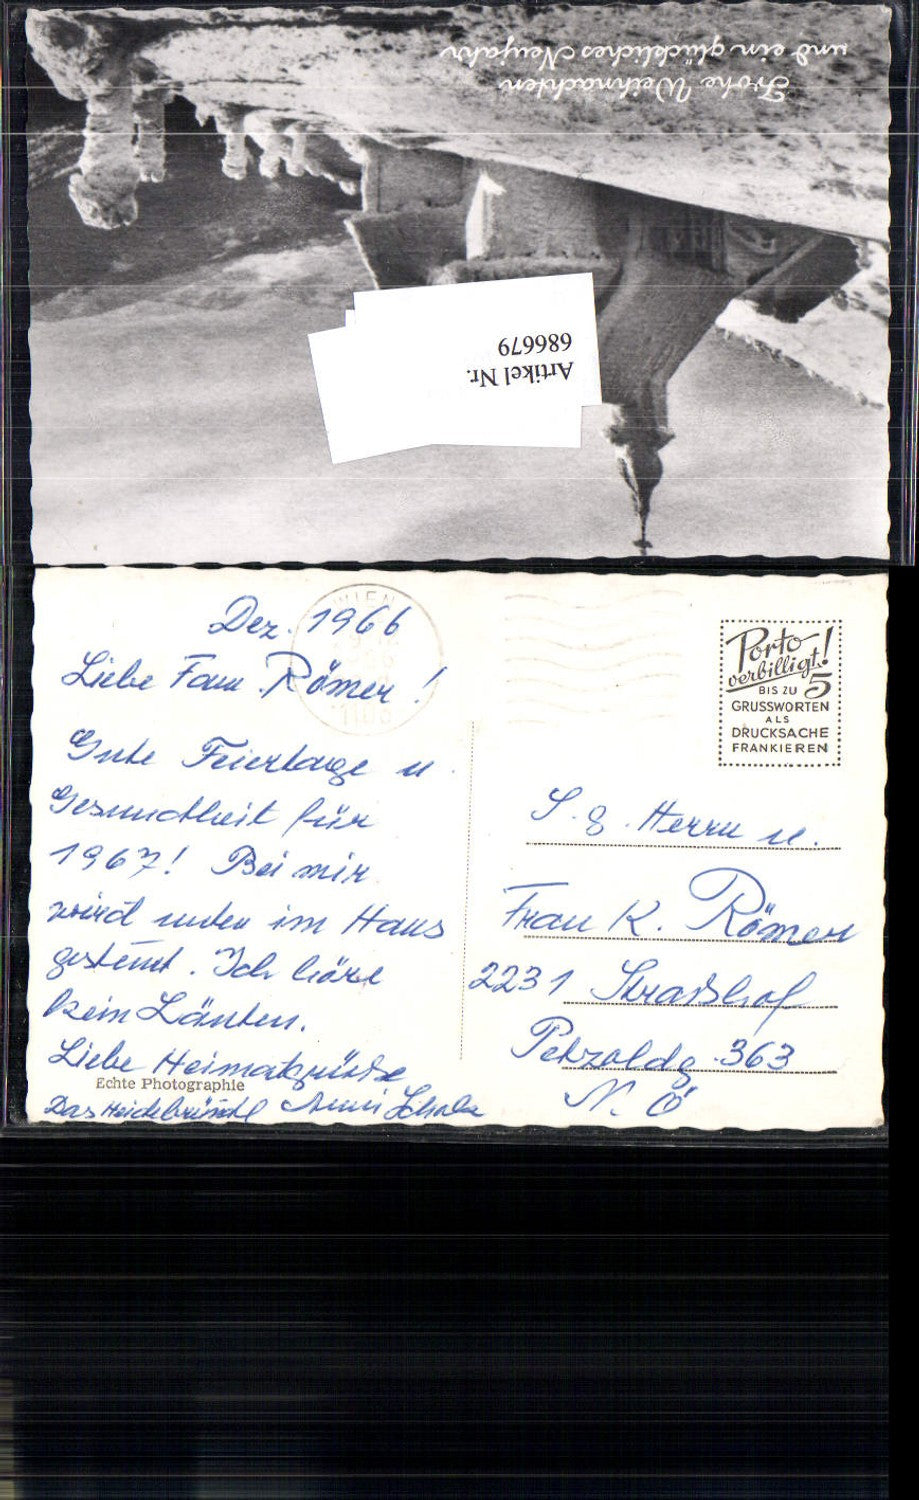 Frohe Weihnachten
und ein glückliches Neujahr
Artikel Nr.
686679
WIEN
Dez. 1966
Liebe Frau Römer!
Gute Feiertage u.
Gesundheit für
1967! Bei mir
wird unten im Haus
gestemt. Ich höre
kein Läuten.
Liebe Heimatgrüße
Echte Photographie
Das Heidebrünnl Anni
Porto
verbilligt!
BIS ZU 5
GRUSSWORTEN
ALS
DRUCKSACHE
FRANKIEREN
S. g. Herrn u.
Frau K. Römer
2231 Straßhof
Petzoldg. 363
N. Ö